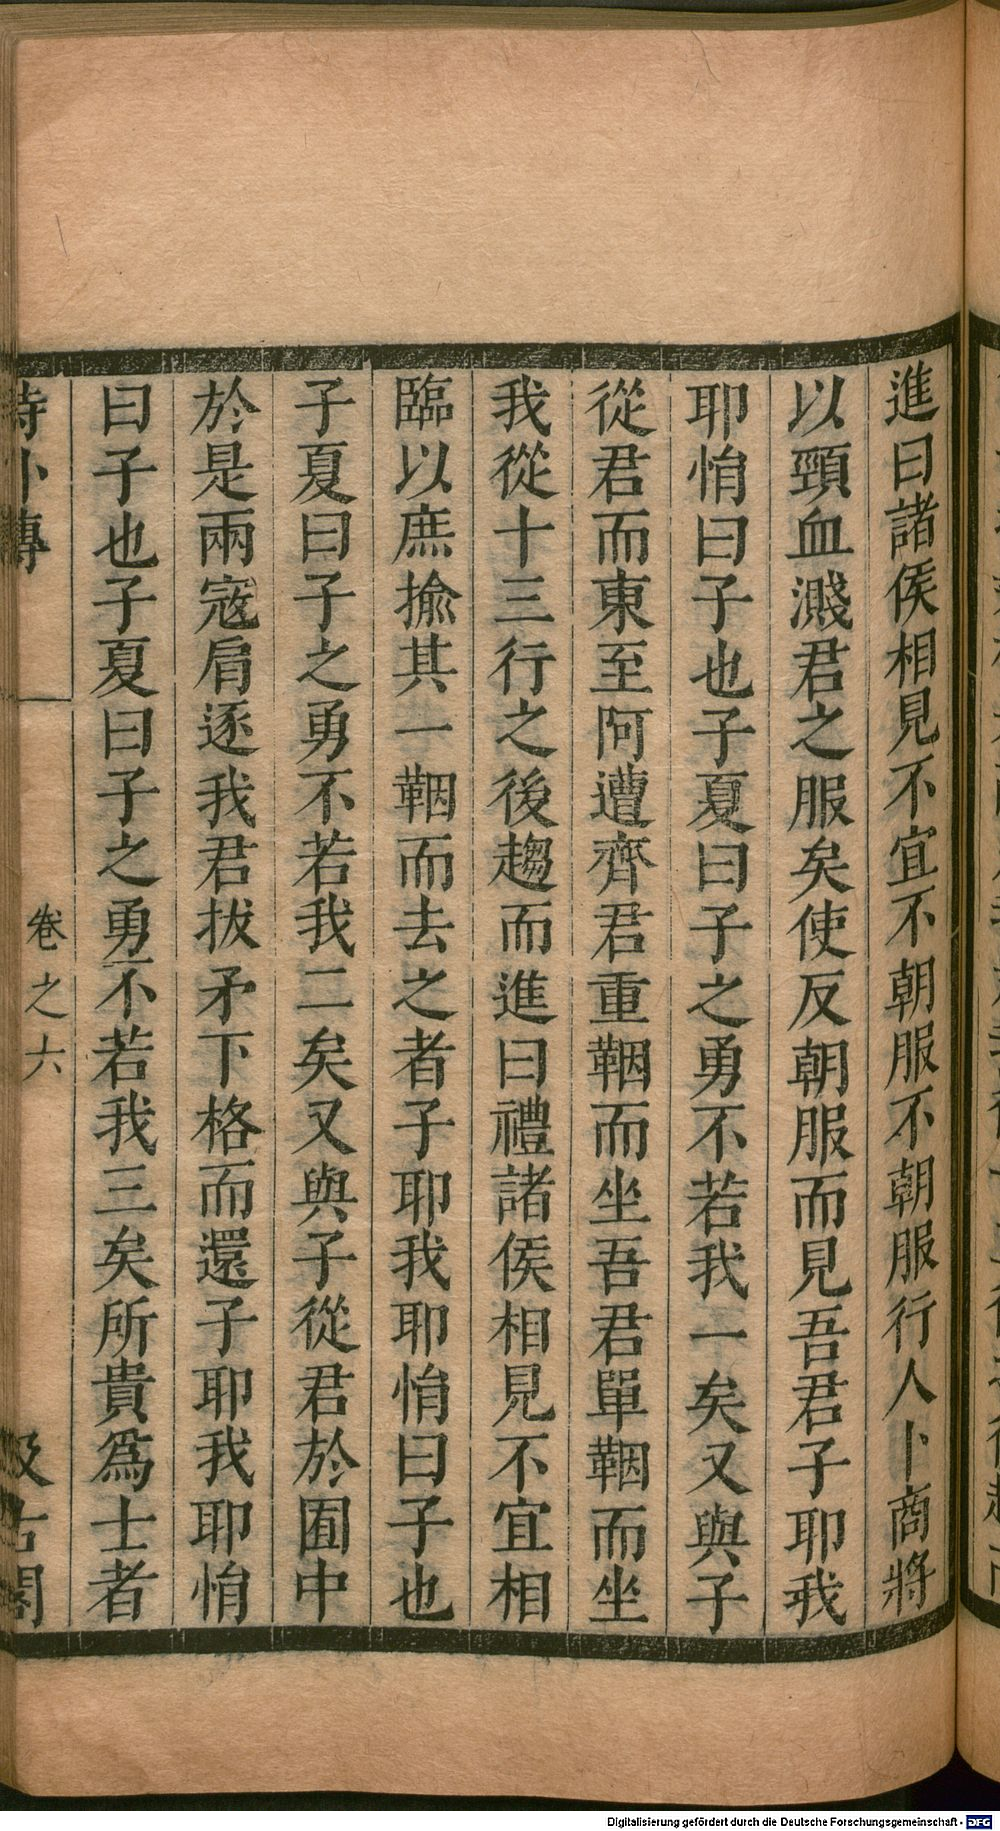 進曰諸侯相見不宜不朝服不朝服行人卜商將
以頸血濺君之服矣使反朝服而見吾君子耶我
耶悁曰子也子夏曰子之勇不若我一矣又與子
從君而東至阿遭齊君重鞇而坐吾君單鞇而坐
我從十三行之後趨而進曰禮諸侯相見不宜相
臨以庶揄其一鞇而去之者子耶我耶悁曰子也
子夏曰子之勇不若我二矣又與子從君於囿中
於是兩寇肩逐我君拔矛下格而還子耶我耶悁
曰子也子夏曰子之勇不若我三矣所貴爲士者
詩外傳
卷之六
汲古閣
Digitalisierung gefördert durch die Deutsche Forschungsgemeinschaft - DFG